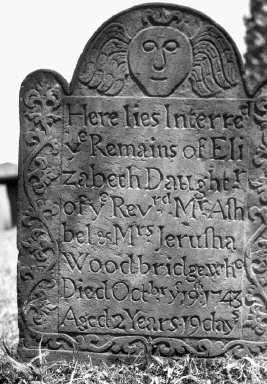 Here lies Interred
yͤ Remains of Eli
zabeth Daughtr
of yͤ Revrd Mr Ash
bel & Mrs Jerusha
Woodbridge who
Died Octbr yͤ 19 1743
Aged 2 Years 19 days